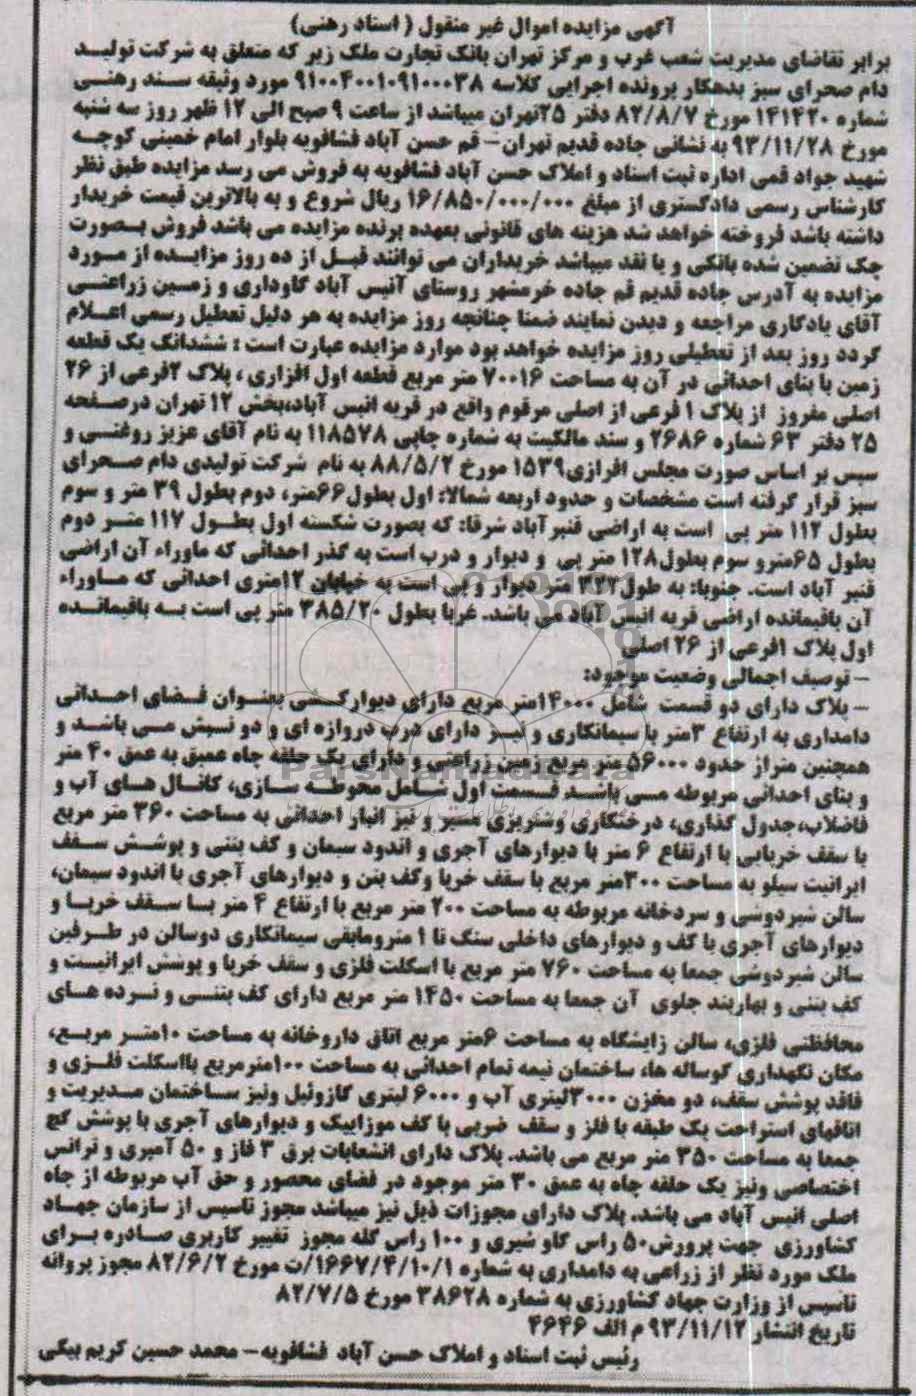 آگهی مزایده اموال غیر منقول ( اسناد رهنی)
برابر تقاضای مدیریت شعب غرب و مرکز تهران بانک تجارت ملک زیر که متعلق به شرکت تولید
دام صحرای سبز بدهکار پرونده اجرایی کلاسه ۹۱۰۰۴۰۰۱۰۹۱۰۰۰۳۸ مورد وثیقه سند رهنی
شماره ۱۴۱۴۲۰ مورخ ۸۲/۸/۷ دفتر ۲۵تهران میباشد از ساعت ۹ صبح الی ۱۲ ظهر روز سه شنبه
مورخ ۹۳/۱۱/۲۸ به نشانی جاده قدیم تهران- قم حسن آباد فشافویه بلوار امام خمینی کوچه
شهید جواد قمی اداره ثبت اسناد و املاک حسن آباد فشافویه به فروش می رسد مزایده طبق نظر
کارشناس رسمی دادگستری از مبلغ ۱۶/۸۵۰/۰۰۰/۰۰۰ ریال شروع و به بالاترین قیمت خریدار
داشته باشد فروخته خواهد شد هزینه های قانونی بعهده برنده مزایده می باشد فروش بصورت
چک تضمین شده بانکی و یا نقد میباشد خریداران می توانند قبل از ده روز مزایده از مورد
مزایده به آدرس جاده قدیم قم جاده خرمشهر روستای آنیس آباد گاوداری و زمین زراعتی
آقای یادکاری مراجعه و دیدن نمایند ضمنا چنانچه روز مزایده به هر دلیل تعطیل رسمی اعلام
گردد روز بعد از تعطیلی روز مزایده خواهد بود موارد مزایده عبارت است : ششدانگ یک قطعه
زمین با بنای احداثی در آن به مساحت ۷۰۰۱۶ متر مربع قطعه اول افرازی ، پلاک ۲فرعی از ۲۶
اصلی مفروز از پلاک ۱ فرعی از اصلی مرقوم واقع در قریه انیس آباد،بخش ۱۲ تهران درصفحه
۲۵ دفتر ۶۳ شماره ۲۶۸۶ و سند مالکیت به شماره چاپی ۱۱۸۵۷۸ به نام آقای عزیز روغنی و
سپس بر اساس صورت مجلس افرازی۱۵۳۹ مورخ ۸۸/۵/۲ به نام شرکت تولیدی دام صحرای
سبز قرار گرفته است مشخصات و حدود اربعه شمالا: اول بطول۶۶متر، دوم بطول ۳۹ متر و سوم
بطول ۱۱۲ متر پی است به اراضی قنبرآباد شرقا: که بصورت شکسته اول بطول ۱۱۷ متر دوم
بطول ۶۵مترو سوم بطول۱۲۸ متر پی و دیوار و درب است به گذر احداثی که ماوراء آن اراضی
قنبر آباد است. جنوبا: به طول۳۲۲ متر دیوار و پی است به خیابان ۱۲متری احداثی که ماوراء
آن باقیمانده اراضی قریه انیس آباد می باشد. غربا بطول ۳۸۵/۲۰ متر پی است به باقیمانده
اول پلاک ۱فرعی از ۲۶ اصلی
- توصیف اجمالی وضعیت موجود:
- پلاک دارای دو قسمت شامل ۱۴۰۰۰متر مربع دارای دیوارکشی بعنوان فضای احداثی
دامداری به ارتفاع ۳متر با سیمانکاری و نیز دارای درب دروازه ای و دو نبش می باشد و
همچنین متراز حدود ۵۶۰۰۰ متر مربع زمین زراعتی و دارای یک حلقه چاه عمیق به عمق ۴۰ متر
و بنای احداثی مربوطه می باشد قسمت اول شامل محوطه سازی، کانال های آب و
فاضلاب،جدول گذاری، درختکاری وشنریزی مسیر و نیز انبار احداثی به مساحت ۳۶۰ متر مربع
با سقف خرپایی با ارتفاع ۶ متر با دیوارهای آجری و اندود سیمان و کف بتنی و پوشش سقف
ایرانیت سیلو به مساحت ۳۰۰متر مربع با سقف خرپا وکف بتن و دیوارهای آجری با اندود سیمان،
سالن شیردوشی و سردخانه مربوطه به مساحت ۲۰۰ متر مربع با ارتفاع ۴ متر با سقف خرپا و
دیوارهای آجری با کف و دیوارهای داخلی سنگ تا ۱ مترومابقی سیمانکاری دوسالن در طرفین
سالن شیردوشی جمعا به مساحت ۷۶۰ متر مربع با اسکلت فلزی و سقف خرپا و پوشش ایرانیت و
کف بتنی و بهاربند جلوی آن جمعا به مساحت ۱۴۵۰ متر مربع دارای کف بتنی و نرده های
محافظتی فلزی، سالن زایشگاه به مساحت ۶متر مربع اتاق داروخانه به مساحت ۱۰متر مربع،
مکان نگهداری گوساله ها، ساختمان نیمه تمام احداثی به مساحت ۱۰۰مترمربع بااسکلت فلزی و
فاقد پوشش سقف، دو مخزن ۳۰۰۰لیتری آب و ۶۰۰۰ لیتری گازوئیل ونیز ساختمان مدیریت و
اتاقهای استراحت یک طبقه با فلز و سقف ضربی با کف موزاییک و دیوارهای آجری با پوشش گچ
جمعا به مساحت ۳۵۰ متر مربع می باشد. پلاک دارای انشعابات برق ۳ فاز و ۵۰ آمپری و ترانس
اختصاصی ونیز یک حلقه چاه به عمق ۳۰ متر موجود در فضای محصور و حق آب مربوطه از چاه
اصلی انیس آباد می باشد. پلاک دارای مجوزات ذیل نیز میباشد مجوز تاسیس از سازمان جهاد
کشاورزی جهت پرورش۵۰ راس گاو شیری و ۱۰۰ راس گله مجوز تغییر کاربری صادره برای
ملک مورد نظر از زراعی به دامداری به شماره ۱۶۶۷/۴/۱۰/۱/ت مورخ ۸۲/۶/۲ مجوز پروانه
تاسیس از وزارت جهاد کشاورزی به شماره ۳۸۶۲۸ مورخ ۸۲/۷/۵
تاریخ انتشار ۹۳/۱۱/۱۲ م الف ۴۶۴۶
رئیس ثبت اسناد و املاک حسن آباد فشافویه- محمد حسین کریم بیگی
ParsNamadData